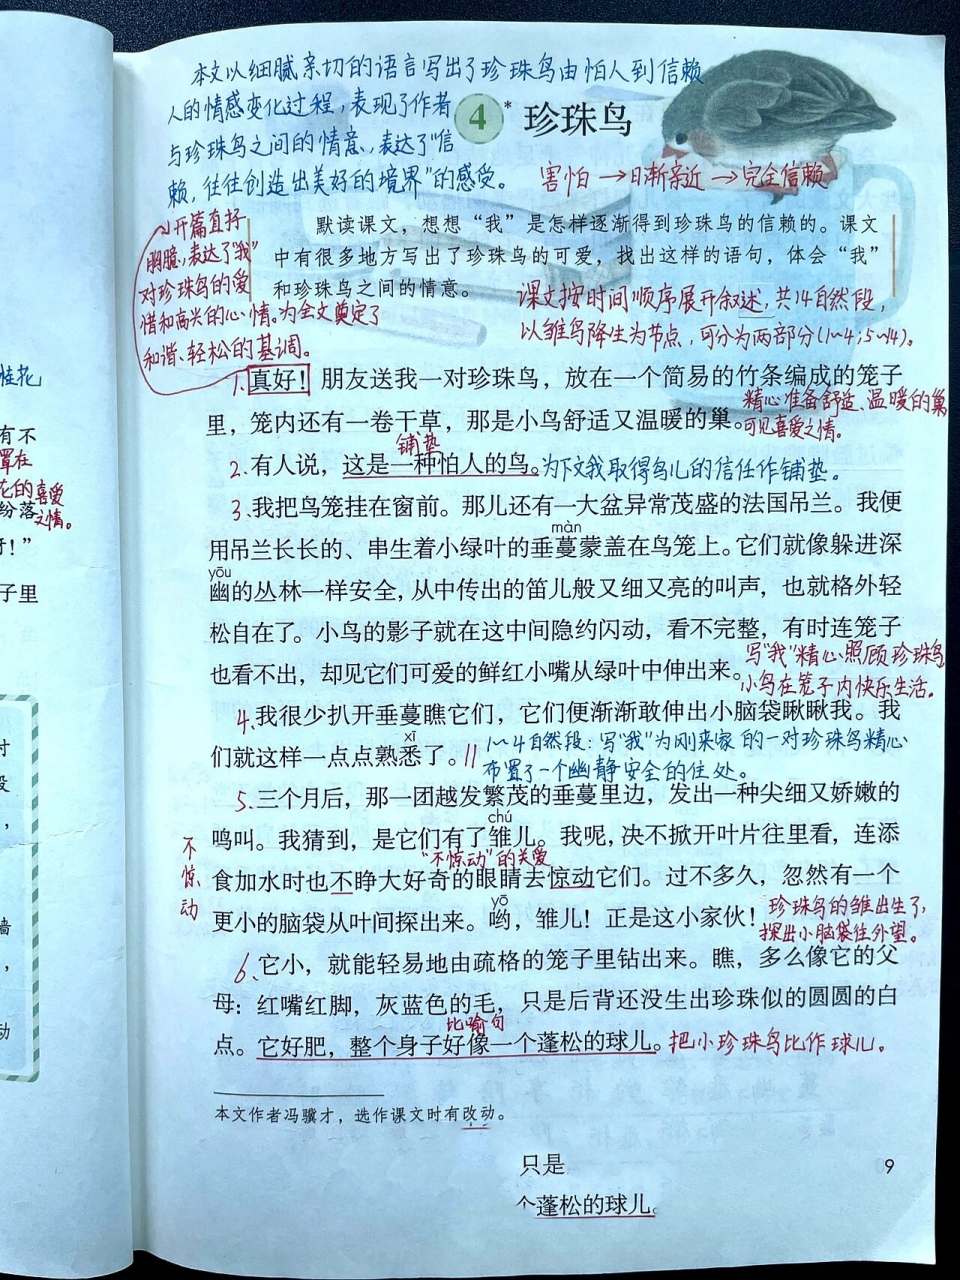 本文以细腻亲切的语言写出了珍珠鸟由怕人到信赖
人的情感变化过程，表现了作者
与珍珠鸟之间的情意，表达了“信
赖，往往创造出美好的境界”的感受。
4* 珍珠鸟
害怕→日渐亲近→完全信赖
开篇直抒
胸臆，表达了“我”
对珍珠鸟的爱
惜和高兴的心情。为全文奠定了
和谐、轻松的基调。
默读课文，想想“我”是怎样逐渐得到珍珠鸟的信赖的。课文
中有很多地方写出了珍珠鸟的可爱，找出这样的语句，体会“我”
和珍珠鸟之间的情意。
课文按时间顺序展开叙述，共14自然段，
以雏鸟降生为节点，可分为两部分(1~4；5~14)。
1.真好！朋友送我一对珍珠鸟，放在一个简易的竹条编成的笼子
里，笼内还有一卷干草，那是小鸟舒适又温暖的巢。
精心准备舒适、温暖的巢
可见喜爱之情。
铺垫
2.有人说，这是一种怕人的鸟。为下文我取得鸟儿的信任作铺垫。
3.我把鸟笼挂在窗前。那儿还有一大盆异常茂盛的法国吊兰。我便
màn
用吊兰长长的、串生着小绿叶的垂蔓蒙盖在鸟笼上。它们就像躲进深
yōu
幽的丛林一样安全，从中传出的笛儿般又细又亮的叫声，也就格外轻
松自在了。小鸟的影子就在这中间隐约闪动，看不完整，有时连笼子
也看不出，却见它们可爱的鲜红小嘴从绿叶中伸出来。
写“我”精心照顾珍珠鸟
小鸟在笼子内快乐生活。
4.我很少扒开垂蔓瞧它们，它们便渐渐敢伸出小脑袋瞅瞅我。我
xī
们就这样一点点熟悉了。
1~4自然段：写“我”为刚来家的一对珍珠鸟精心
布置了一个幽静安全的住处。
5.三个月后，那一团越发繁茂的垂蔓里边，发出一种尖细又娇嫩的
chú
鸣叫。我猜到，是它们有了雏儿。我呢，决不掀开叶片往里看，连添
“不惊动”的关爱
不惊动
食加水时也不睁大好奇的眼睛去惊动它们。过不多久，忽然有一个
yō
更小的脑袋从叶间探出来。哟，雏儿！正是这小家伙！
珍珠鸟的雏出生了，
探出小脑袋往外望。
6.它小，就能轻易地由疏格的笼子里钻出来。瞧，多么像它的父
母：红嘴红脚，灰蓝色的毛，只是后背还没生出珍珠似的圆圆的白
比喻句
点。它好肥，整个身子好像一个蓬松的球儿。把小珍珠鸟比作球儿。
本文作者冯骥才，选作课文时有改动。
只是
9
个蓬松的球儿。
桂花
有不
罩在
花的喜爱
纷落
之情。
！”
子里
动